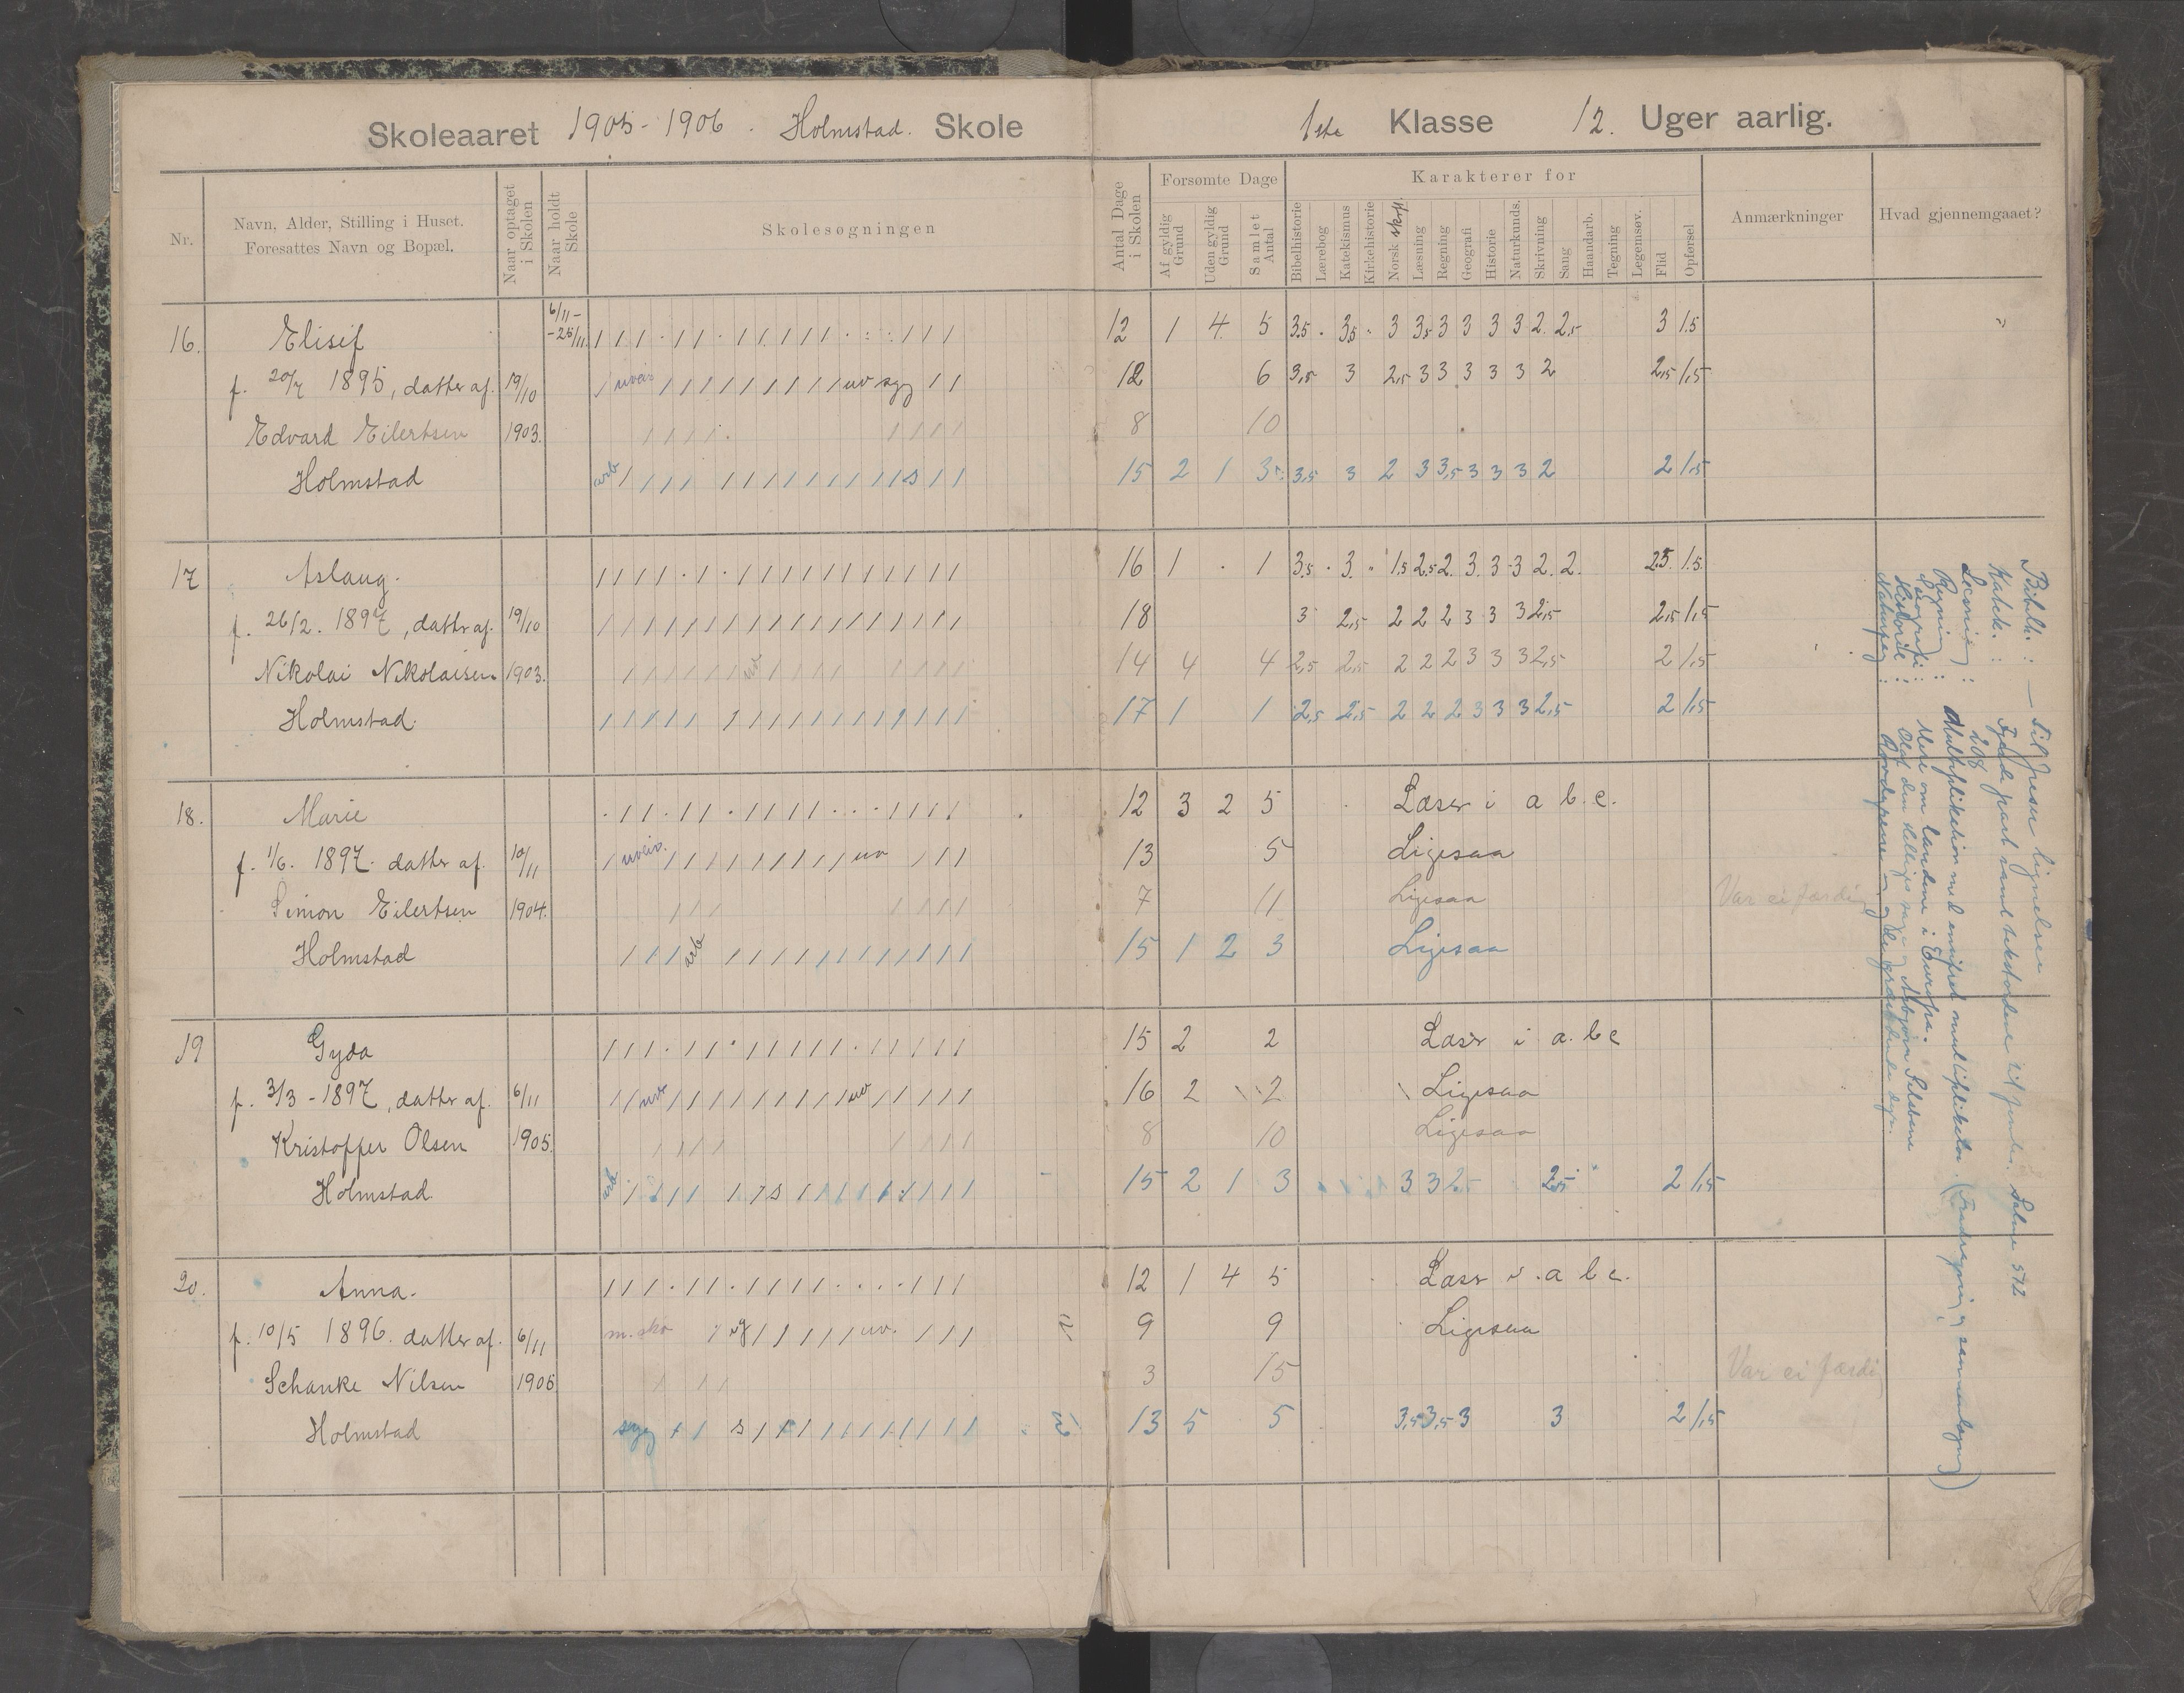 Skoleaaret 1905-1906. Holmstad. Skole
1ste Klasse 12. Uger aarlig.
Nr.
Navn, Alder, Stilling i Huset.
Foresattes Navn og Bopæl.
Naar optaget i Skolen
Naar holdt Skole
Skolesøgningen
Antal Dage i Skolen
Forsømte Dage
Af gyldig Grund
Uden gyldig Grund
Samlet Antal
Karakterer for
Bibelhistorie
Lærebog
Katekismus
Kirkehistorie
Norsk skrftl.
Læsning
Regning
Geografi
Historie
Naturkunds.
Skrivning
Sang
Haandarb.
Tegning
Legemsøv.
Flid
Opførsel
Anmærkninger
Hvad gjennemgaaet?
16. Elisif 6/11 - - 25/11 12 1 4 5 3,5 3,5 3 3,5 3 3 3 3 2 2,5 3 1.5
f. 20/7 1895, datter af. 19/10 uveir uv syg 12 6 3,5 3 2,5 3 3 3 3 3 2 2,5 1,5
Edvard Eilertsen 1903. 8 10
Holmstad arb s 15 2 1 3 3,5 3 2 3 3,5 3 3 3 2 2 1,5
17 Aslaug. 16 1 1 3,5 3 1,5 2,5 2 3 3 3 2 2 2.5 1.5
f. 26/2. 1897, datter af. 19/10 18 3 2,5 2 2 2 3 3 3 2,5 2,5 1,5
Nikolai Nikolaisen 1903. 14 4 4 2,5 2,5 2 2 2 3 3 3 2,5 2 1,5
Holmstad. 17 1 1 2,5 2,5 2 2 2 3 3 3 2,5 2 1,5
18. Marie 12 3 2 5 Læser i a b. c.
f. 1/6. 1897. datter af. 10/11 uveir. uv 13 5 Ligesaa
Simon Eilertsen 1904. 7 11 Ligesaa Var ei færdig
Holmstad arb 15 1 2 3 Ligesaa
19 Gyda 15 2 2 Læser i a. b c
f. 3/3 - 1897, datter af. 6/11 uve uv 16 2 2 Ligesaa
Kristoffer Olsen 1905. 8 10 Ligesaa
Holmstad arb s 15 2 1 3 3 3 2,5 2,5 2 1,5
20. Anna. 12 1 4 5 Læser i a b c.
f. 10/5 1896. datter af. 6/11 m. sko uv. 9 9 Ligesaa
Schanke Nilsen 1905 3 15 Var ei færdig
Holmstad syg s 13 5 5 3,5 3,5 3 3 2 1,5
Bibelh.: — til Jesu lignelser
Katek.: Fjerde part samt tekstordene til femte. Salme 572
Læsning: 208
Regning: Multiplikation med ensifret multiplikator. (Fradragning og sammenlægning)
Geografi: Mere om landene i Europa.
Historie: Olad den helliges saga og Asbjørn Selsbane
Naturfag: Rovdyrene og de græsædende dyr.